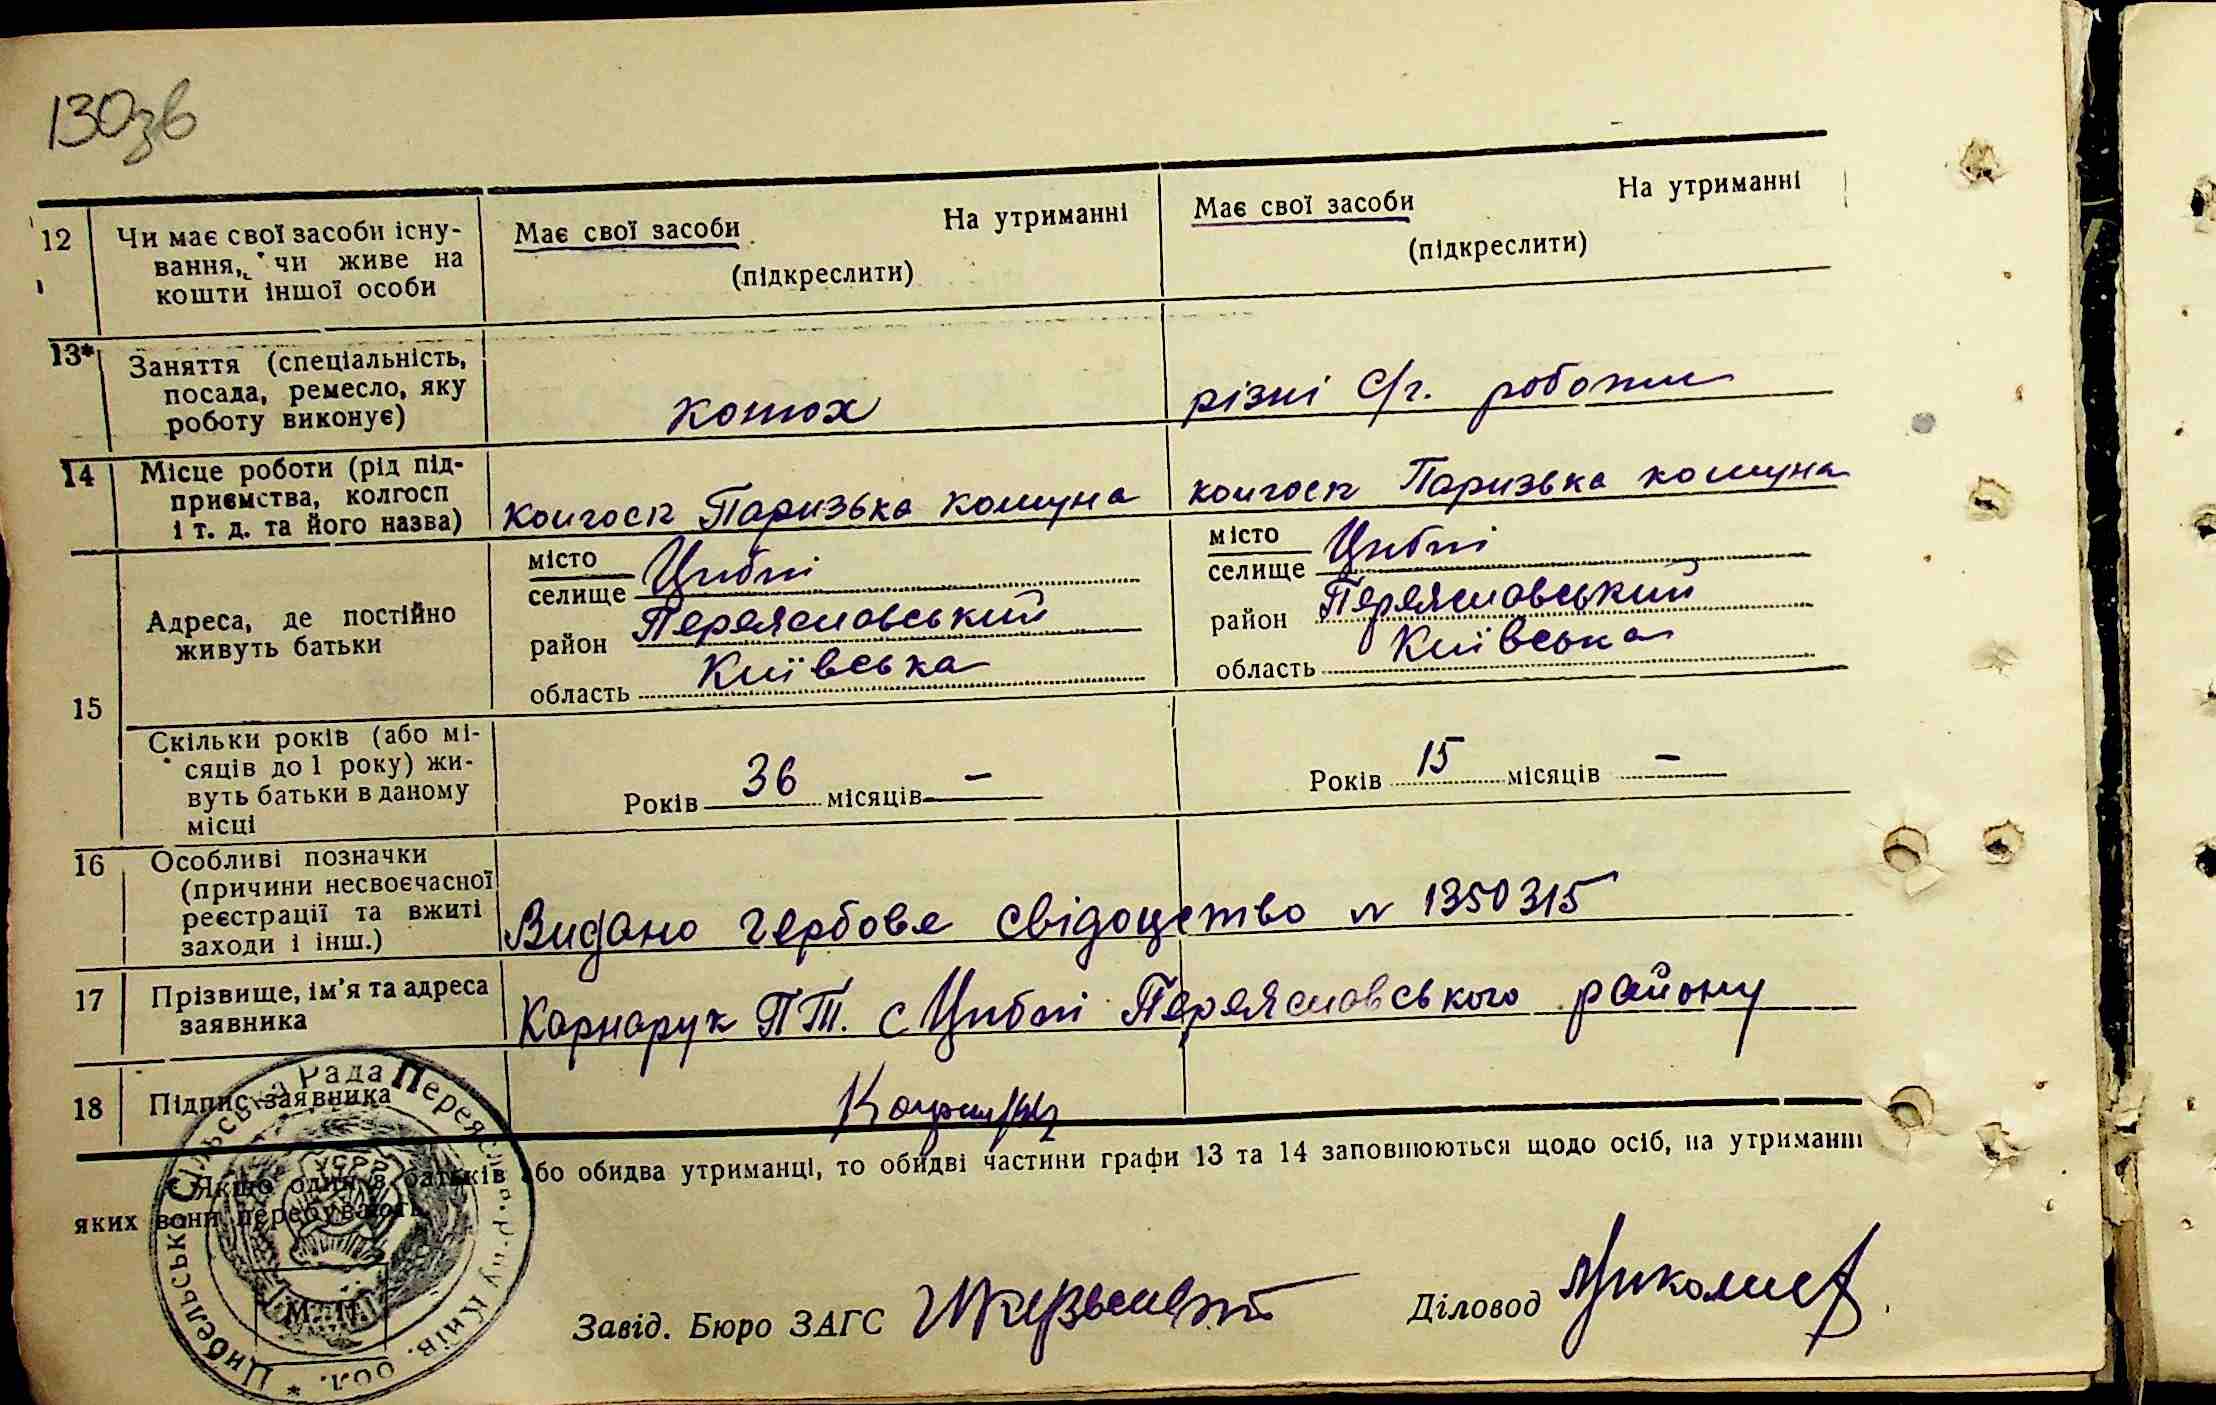 130зв
12 Чи має свої засоби існу- Має свої засоби На утриманні Має свої засоби На утриманні
вання, чи живе на (підкреслити) (підкреслити)
кошти іншої особи
13* Заняття (спеціальність,
посада, ремесло, яку конюх різні с/г. роботи
роботу виконує)
14 Місце роботи (рід під-
приємства, колгосп колгосп Паризька комуна колгосп Паризька комуна
і т. д. та його назва)
15 Адреса, де постійно
живуть батьки
місто
селище Циблі
район Переяславський
область Київська
місто
селище Циблі
район Переяславський
область Київська
Скільки років (або мі-
сяців до 1 року) жи- Років 36 місяців — Років 15 місяців —
вуть батьки в даному
місці
16 Особливі позначки
(причини несвоєчасної
реєстрації та вжиті Видано гербове свідоцтво № 1350315
заходи і інш.)
17 Прізвище, ім'я та адреса Карнарук П.Т. с Циблі Переяславського району
заявника
18 Підпис заявника
* Якщо один з батьків або обидва утриманці, то обидві частини графи 13 та 14 заповнюються щодо осіб, на утриманні
яких вони перебувають.
Цибельська Сільська Рада Переясл. р-ну Київ. обл. *
УСРР
М. П.
Завід. Бюро ЗАГС
Діловод